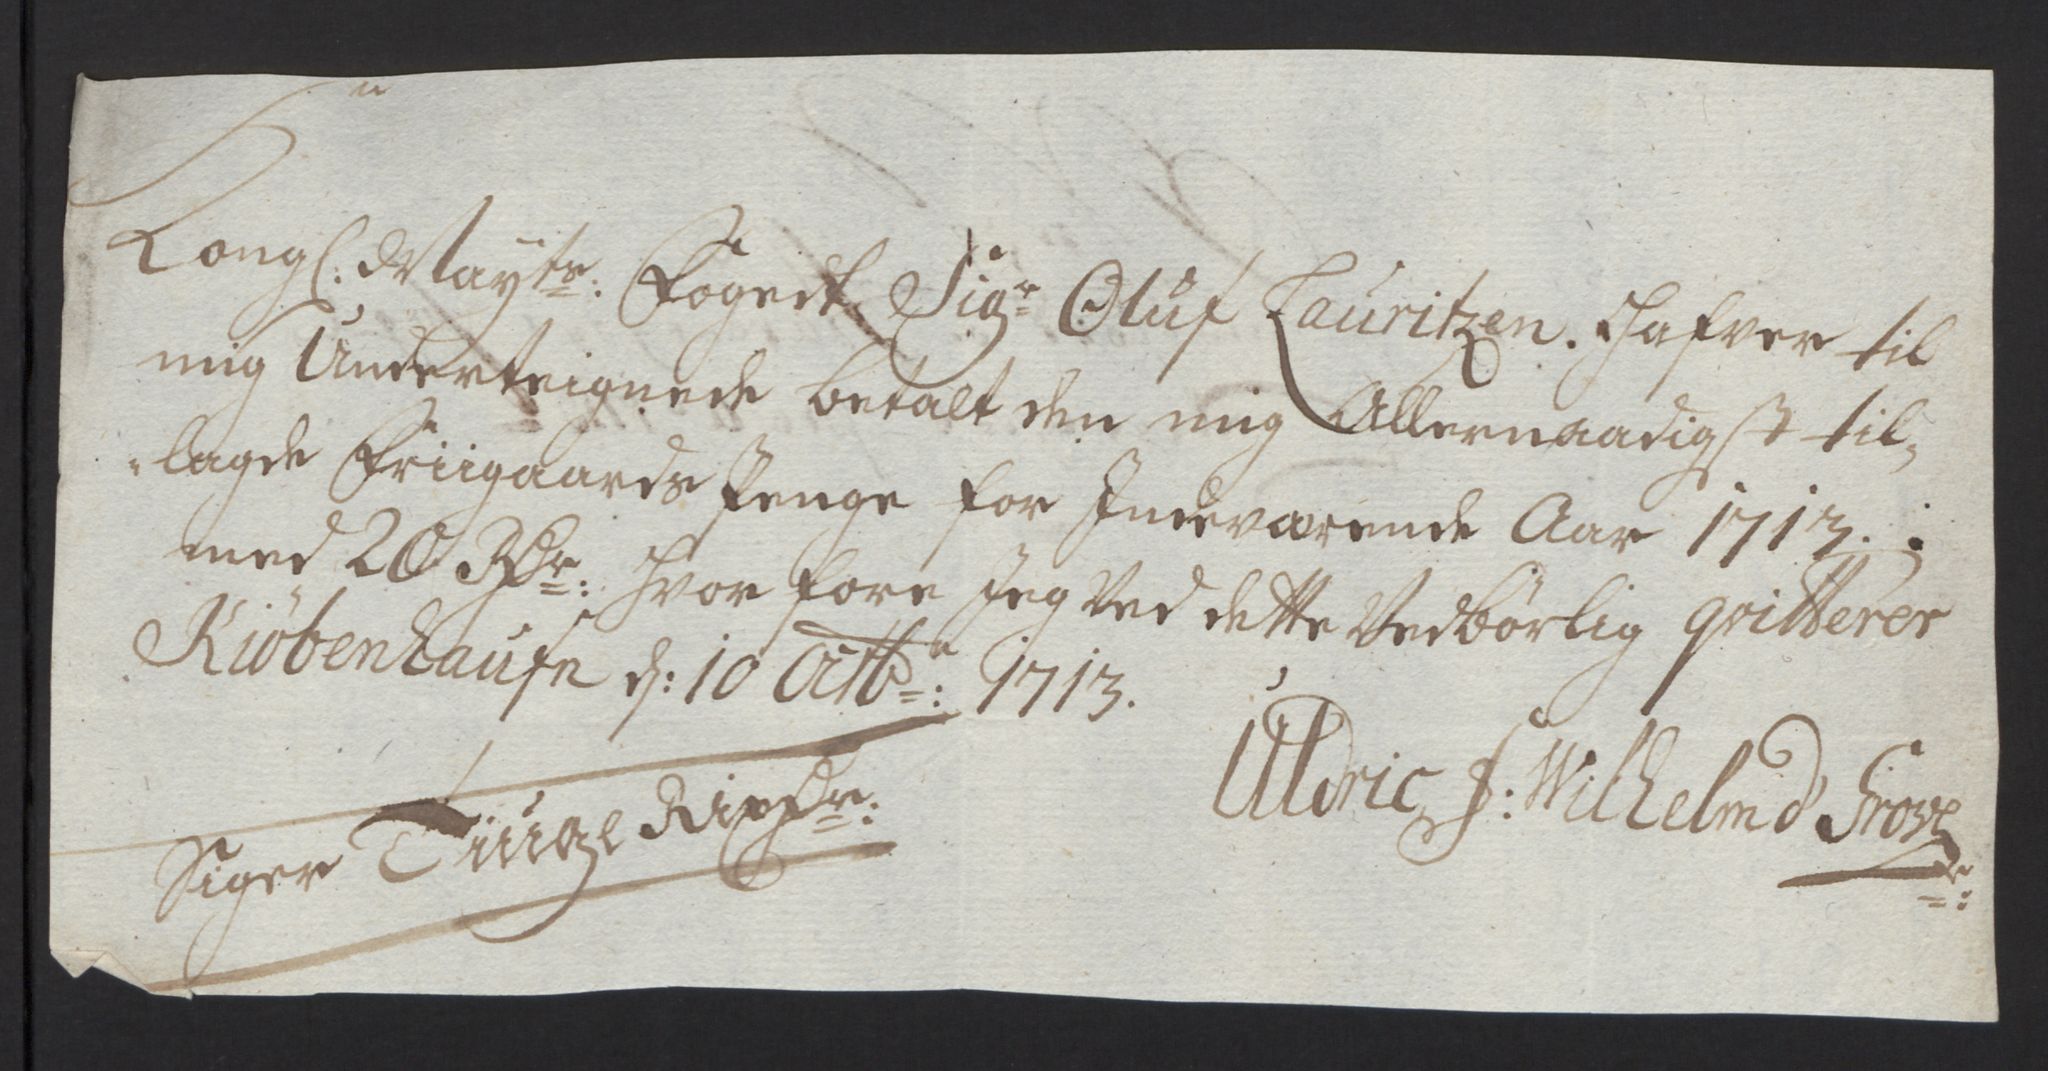 Kongl: Mayts: Fogedt Sigr Oluf Lauritzen. Hafver til
mig Underteignede betalt den mig Allernaadigst til-
lagde Friigaards Penge for Indeværende Aar 1713.
med 20 Rdr: hvor fore Jeg Ved dette Vedbörlig qvitterer
Kiöbenhaufn d: 10 Octbr: 1713.
Uldric F: Wilhelm d
Siger Tiuge Rixdr: